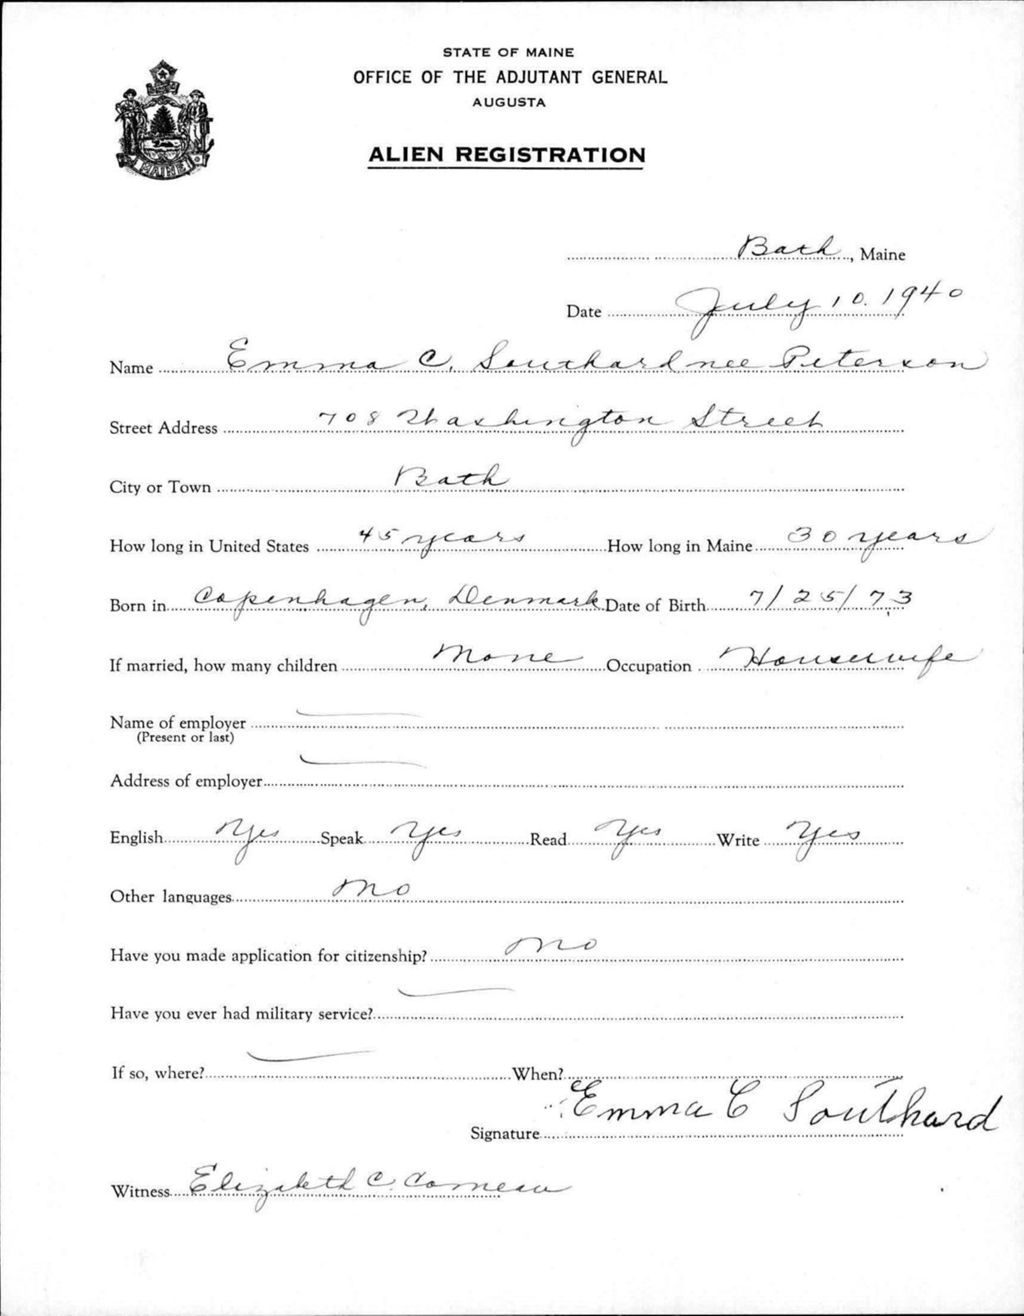 STATE OF MAINE
OFFICE OF THE ADJUTANT GENERAL
AUGUSTA
ALIEN REGISTRATION
MAINE
Bath, Maine
Date July 10. 1940
Name Emma C. Southard nee Peterson
Street Address 708 Washington Street
City or Town Bath
How long in United States 45 years How long in Maine 30 years
Born in Copenhagen, Denmark Date of Birth 7/25/73
If married, how many children None Occupation Housewife
Name of employer
(Present or last)
Address of employer
English Yes Speak Yes Read Yes Write Yes
Other languages No
Have you made application for citizenship? No
Have you ever had military service?
If so, where? When?
Signature Emma C Southard
Witness Elizabeth C. Comeau